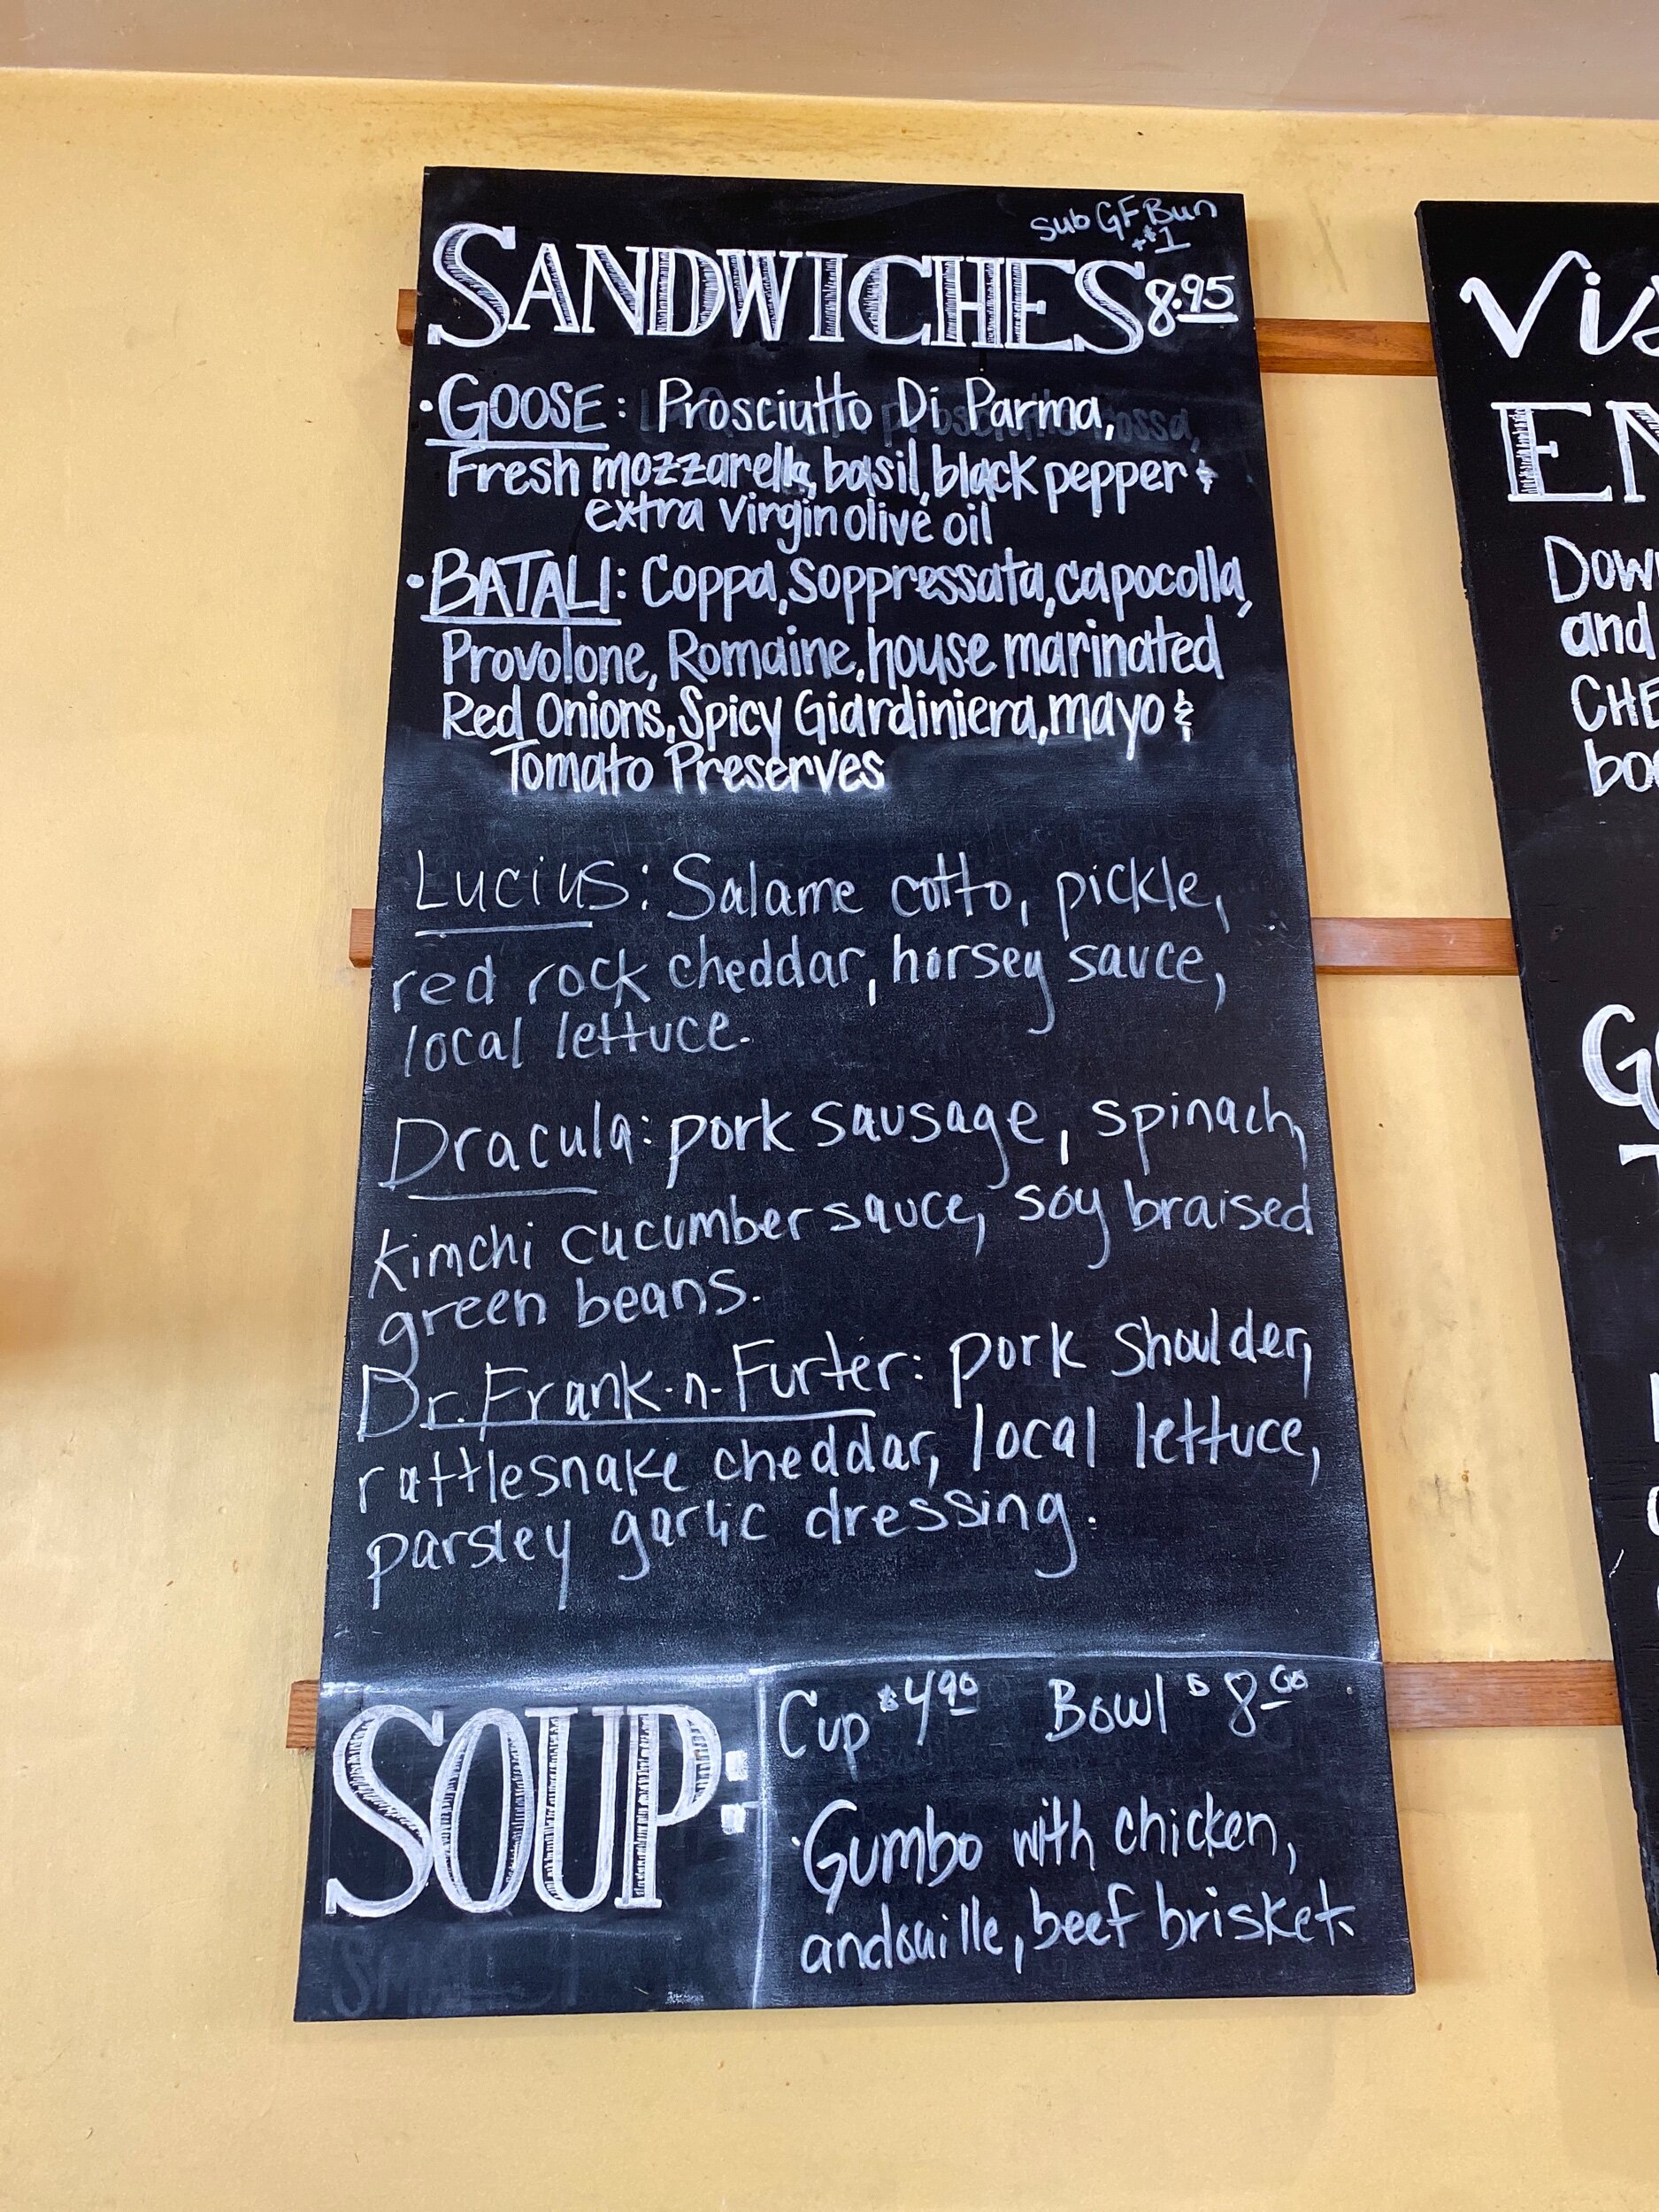 Sub GF Bun
+$1
SANDWICHES 8.95
• GOOSE: Prosciutto Di Parma,
Fresh mozzarella, basil, black pepper &
extra virgin olive oil
• BATALI: Coppa, Soppressata, capocolla,
Provolone, Romaine, house marinated
Red Onions, Spicy Giardiniera, mayo &
Tomato Preserves
Lucius: Salame cotto, pickle,
red rock cheddar, horsey sauce,
local lettuce.
Dracula: pork sausage, spinach,
kimchi cucumber sauce, soy braised
green beans.
Dr. Frank-n-Furter: pork shoulder,
rattlesnake cheddar, local lettuce,
parsley garlic dressing.
SOUP:
Cup $4.90 Bowl $8.00
• Gumbo with chicken,
andouille, beef brisket.
and